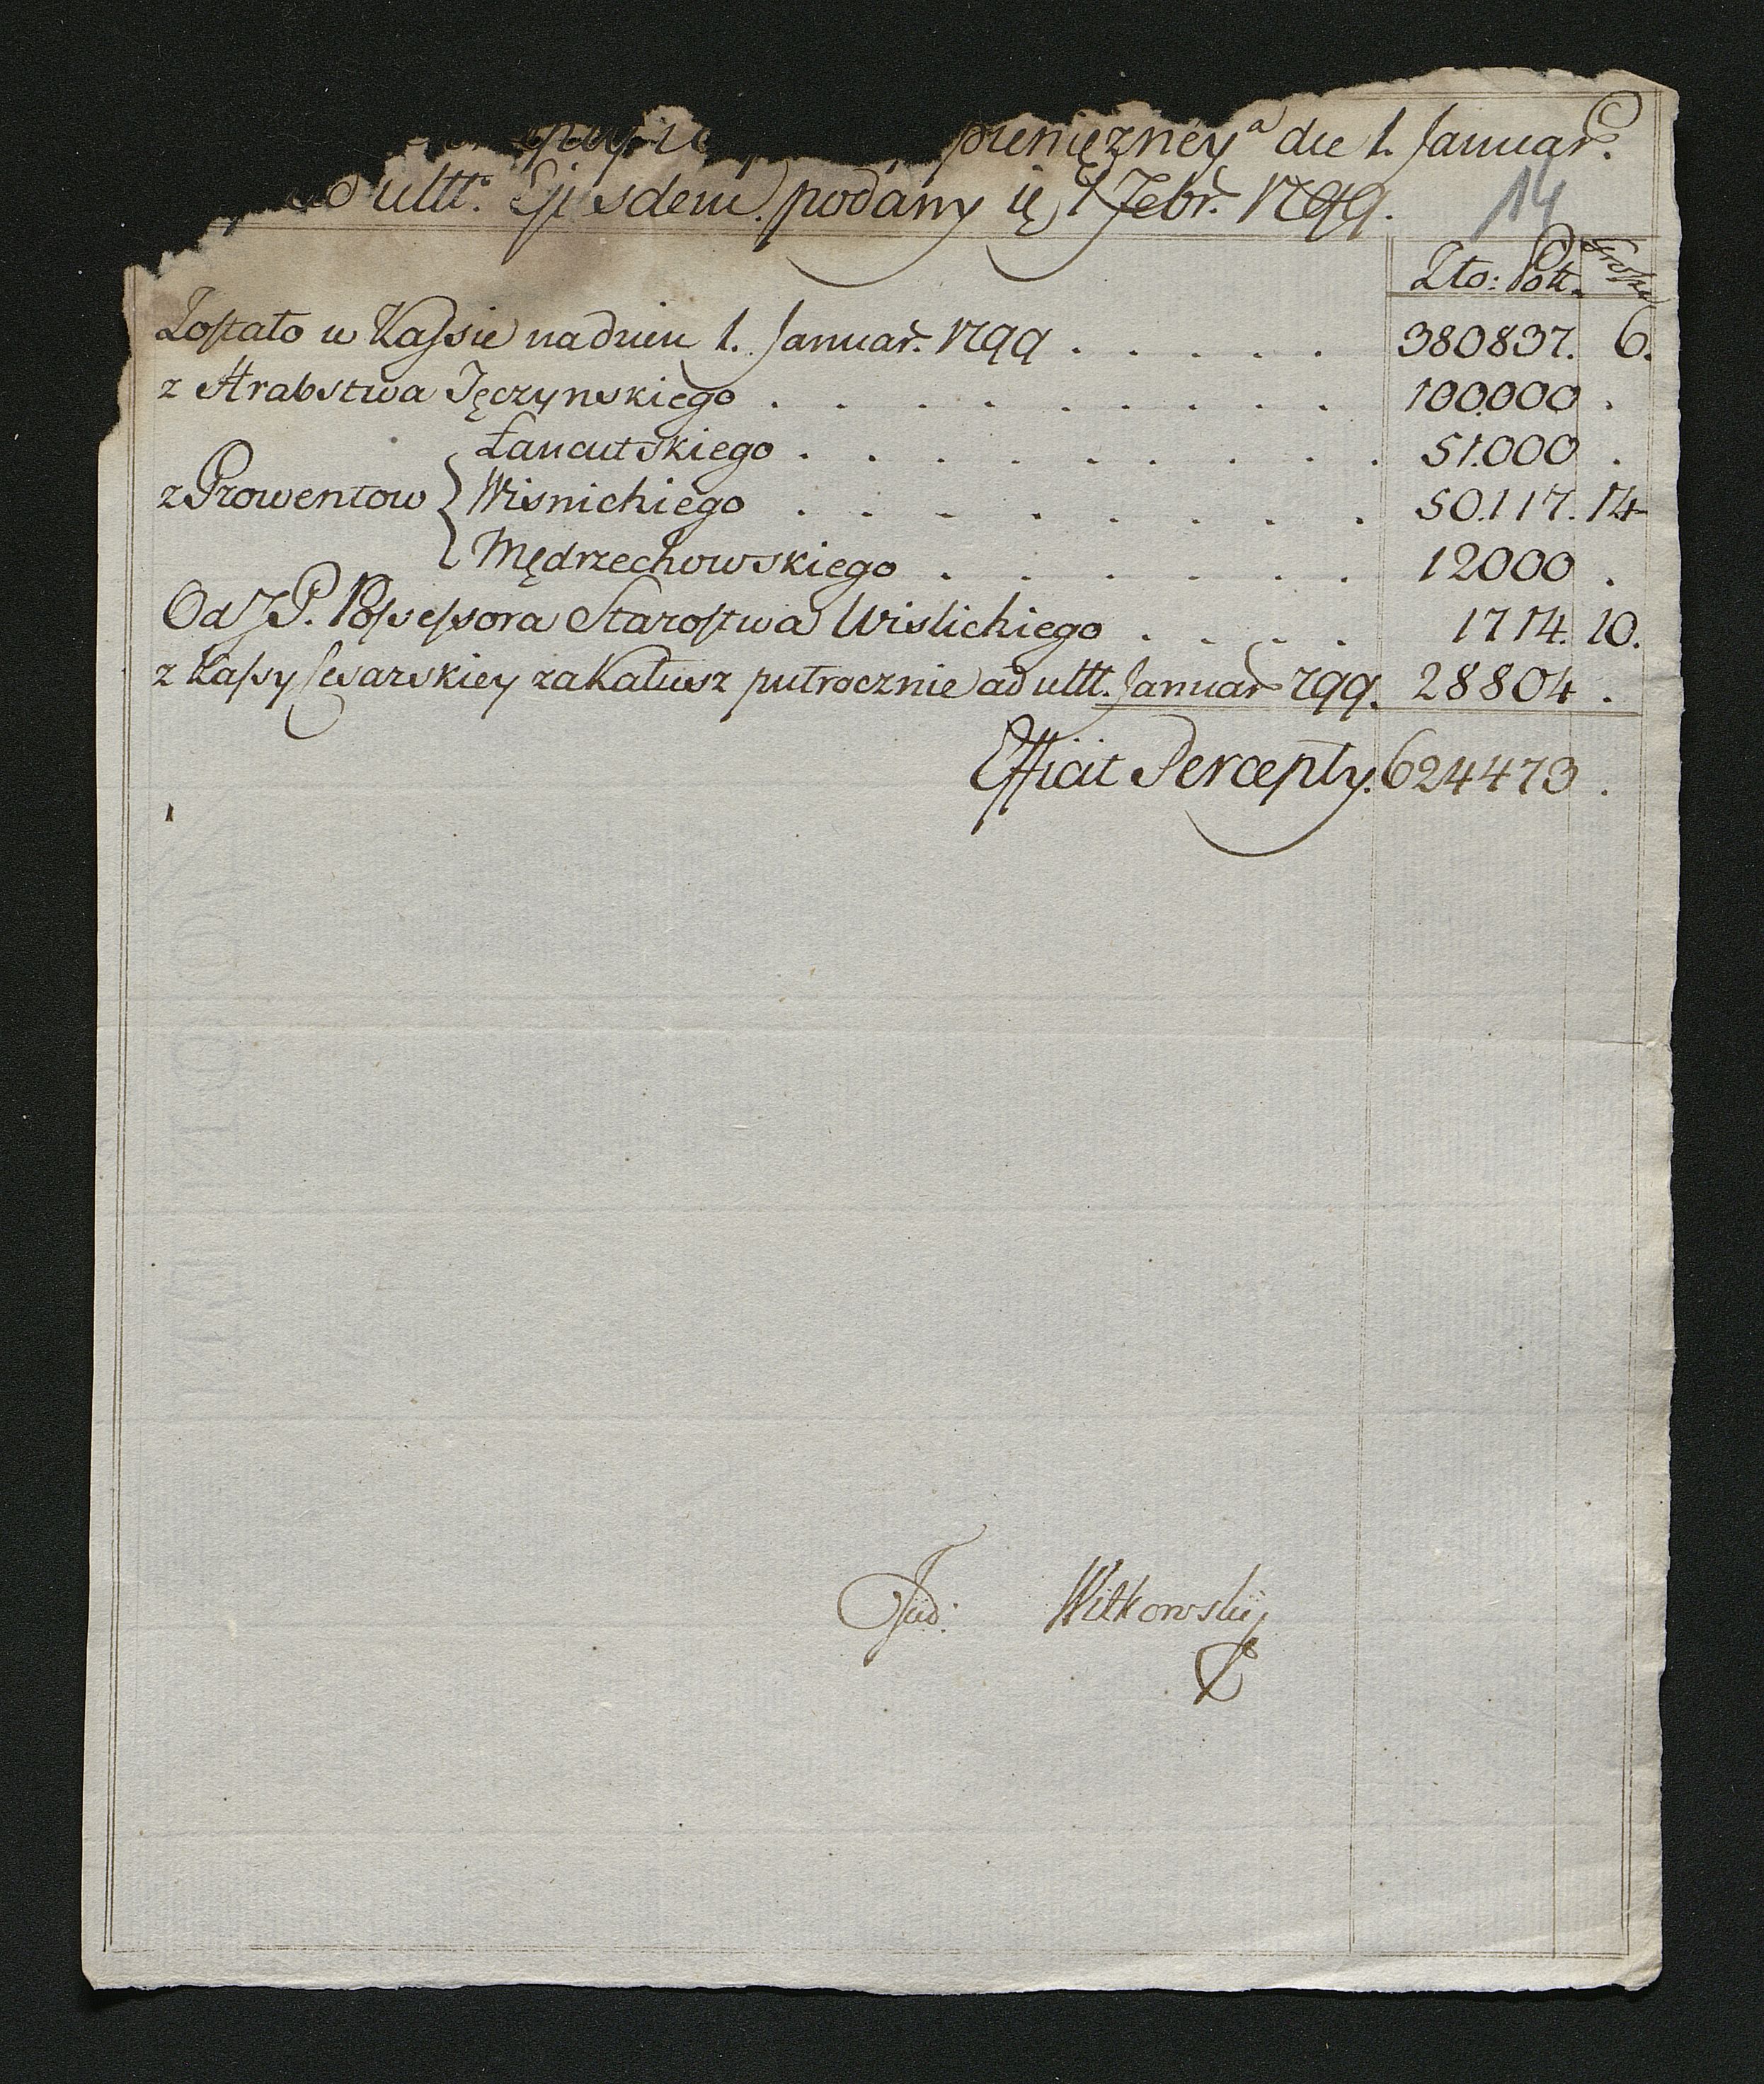 pieniężney a die 1. Januar.
ad ultt. Ejusdem podany ię 1 Febr. 1799.
14
Zło: Pol. Grosze
Zostało w Kassie na dzien 1. Januar. 1799 . . . . . 380837. 6.
z Hrabstwa Tęczynskiego . . . . . . . . . 100.000 .
Łancutskiego . . . . . . . . . 51.000 .
z Prowentow { Wisnickiego . . . . . . . . 50.117. 14
Mędrzechowskiego . . . . . . 12000 .
Od JP. Possessora Starostwa Wislickiego . . . . 1714. 10.
z Kassy Cesarskiey za Kałusz pułrocznie ad ultt. Januar 799. 28804 .
Efficit Percepty. 624473 .
Witkowskij